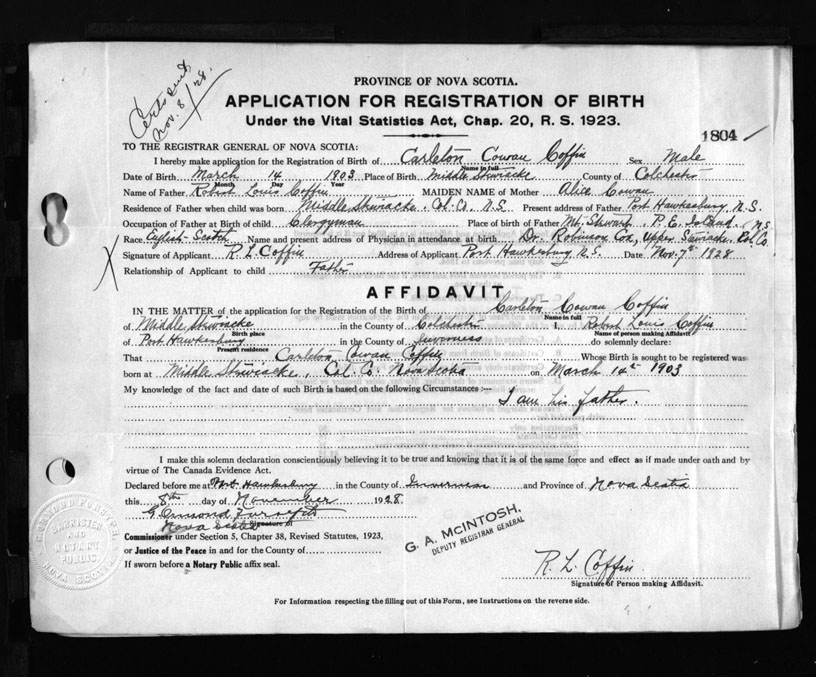 Certs sent
Nov. 8/28.
PROVINCE OF NOVA SCOTIA.
APPLICATION FOR REGISTRATION OF BIRTH
Under the Vital Statistics Act, Chap. 20, R. S. 1923.
1804
TO THE REGISTRAR GENERAL OF NOVA SCOTIA:
I hereby make application for the Registration of Birth of Carleton Cowan Coffin Sex Male
Name in full
Date of Birth March 14 1903 Place of Birth Middle Stewiacke County of Colchester
Month Day Year
Name of Father Robert Louis Coffin MAIDEN NAME of Mother Alice Cowan
Residence of Father when child was born Middle Stewiacke, Col. Co. N.S. Present address of Father Port Hawkesbury N.S.
Occupation of Father at Birth of child Clergyman Place of birth of Father Mt. Stewart, P. E. Island.
Race English-Scotch Name and present address of Physician in attendance at birth Dr. Robinson Cox, Upper Stewiacke, Col. Co. N.S.
Signature of Applicant R. L. Coffin Address of Applicant Port Hawkesbury N.S. Date Nov. 7th 1928
Relationship of Applicant to child Father
AFFIDAVIT
IN THE MATTER of the application for the Registration of the Birth of Carleton Cowan Coffin
Name in full
of Middle Stewiacke in the County of Colchester I, Robert Louis Coffin
Birth place Name of person making Affidavit
of Port Hawkesbury in the County of Inverness do solemnly declare:
Present residence
That Carleton Cowan Coffin Whose Birth is sought to be registered was
born at Middle Stewiacke, Col. Co. Nova Scotia on March 14th 1903
My knowledge of the fact and date of such Birth is based on the following Circumstances :—
I am his father.
I make this solemn declaration conscientiously believing it to be true and knowing that it is of the same force and effect as if made under oath and by
virtue of The Canada Evidence Act.
Declared before me at Port Hawkesbury in the County of Inverness and Province of Nova Scotia
this 8th day of November 1928
G. Ormond
Nova Scotia
Signature of
Commissioner under Section 5, Chapter 38, Revised Statutes, 1923,
or Justice of the Peace in and for the County of
If sworn before a Notary Public affix seal.
G. A. McINTOSH,
DEPUTY REGISTRAR GENERAL
R. L. Coffin
Signature of Person making Affidavit.
BARRISTER
AND
NOTARY
PUBLIC
NOVA SCOTIA
For Information respecting the filling out of this Form, see Instructions on the reverse side.